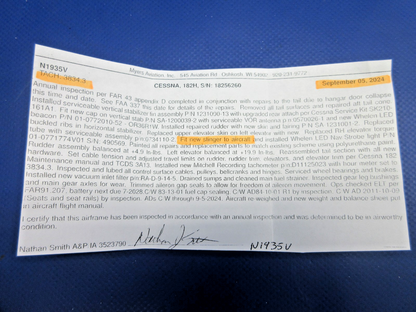 N1935V
TACH: 3834.3
Myers Aviation Inc.
CESSNA, 182H, S/N: 18256260
September 05, 2024
Annual inspection per FAR 43 appendix D completed in conjunction with repairs to the tail due to hangar door collapse
this time and date. See FAA 337 this date for details of the repairs. Removed all tail surfaces and repaired aft tail cone.
Installed serviceable vertical stabilizer assembly P/N 1231090-13 with upgraded rear attach per Cessna Service Kit SK210-
161A1. Fit new cap on vertical stab P/N SA-1200009-2 with serviceable VOR antenna and new Whelen LED
beacon P/N 01-0772910-52 Installed repaired rudder with new disc and fairing P/N
buckled ribs in horizontal stabilizer. Replaced upper elevator skin on left elevator with new. Replaced RH elevator torque
tube with serviceable assembly Fit new slinger to aircraft and installed Whelen LED Nav Strobe light P/N
01-0771774V01 S/N: 490569. Painted all repairs and replacement parts to match existing scheme using polyurethane paint.
Rudder assembly balanced at +4.9 in-lbs. Left elevator balanced at +19.9 in-lbs. Reassembled tail section with all new
hardware. Set cable tension and adjusted travel limits on rudder, rudder trim, elevators, and elevator trim per Cessna 182
Maintenance manual and TCDS 3A13. Installed new Mitchell Recording tachometer with hour meter set to
3834.3. Inspected and lubed all control surface cables, pulleys, bellcranks and hinges. Serviced wheel bearings and brakes.
Installed new vacuum inlet filter p/n RA-D-9-14-5. Drained sumps and cleaned main fuel strainer. Inspected gear leg bushings
and main gear axles for wear. Trimmed aileron gap seals to allow for freedom of aileron movement. Ops checked ELT per
FAR91.207, battery next due 7-2028. C/W AD 2011-10-09
(Seats and seat rails) by inspection. ADs C/W through 9-5-2024. Aircraft re-weighed and new weight and balance placed
in aircraft flight manual.
I certify that this airframe has been inspected in accordance with an annual inspection and was determined to be in airworthy
condition.
Nathan Smith A&P IA 3523790
N1935V